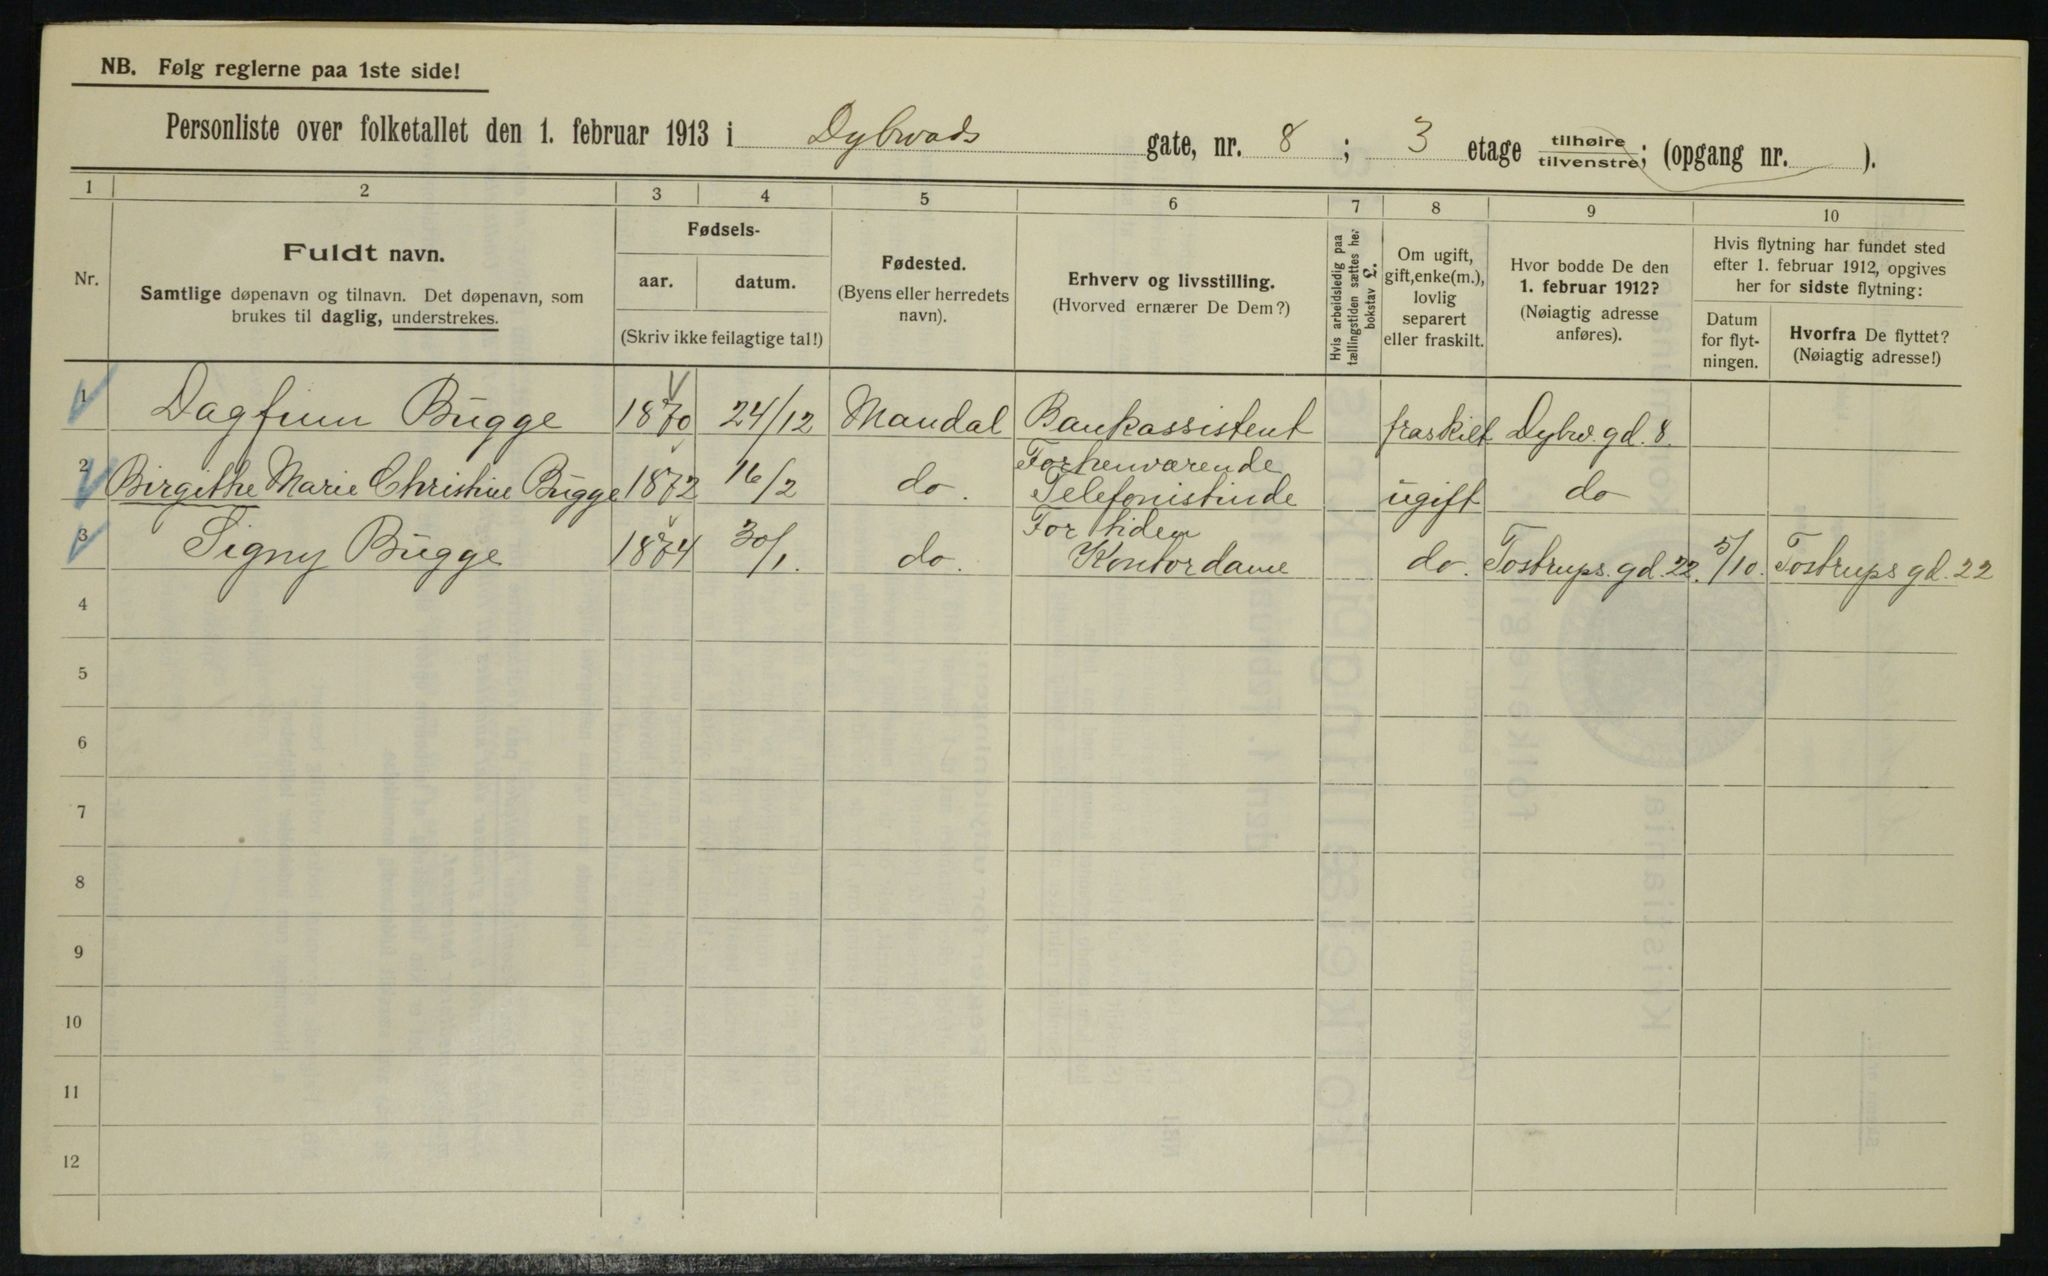 NB. Følg reglerne paa 1ste side!
Personliste over folketallet den 1. februar 1913 i Dybwads gate, nr. 8 ; 3 etage tilhøire tilvenstre; (opgang nr. ).
1 2 3 4 5 6 7 8 9 10
Nr.
Fuldt navn.
Samtlige døpenavn og tilnavn. Det døpenavn, som
brukes til daglig, understrekes.
Fødsels-
aar. datum.
(Skriv ikke feilagtige tal!)
Fødested.
(Byens eller herredets
navn).
Erhverv og livsstilling.
(Hvorved ernærer De Dem?)
Hvis arbeidsledig paa
tællingstiden sættes her
bokstav L.
Om ugift,
gift, enke(m.),
lovlig
separert
eller fraskilt.
Hvor bodde De den
1. februar 1912?
(Nøiagtig adresse
anføres).
Hvis flytning har fundet sted
efter 1. februar 1912, opgives
her for sidste flytning:
Datum
for flyt-
ningen.
Hvorfra De flyttet?
(Nøiagtig adresse!)
1 Dagfinn Bugge 1870 24/12 Mandal Bankassistent fraskilt Dybw. gd. 8.
2 Birgithe Marie Christine Bugge 1872 16/2 do. Forhenværende
Telefonistinde ugift do
3 Signy Bugge 1874 30/1. do. For tiden
Kontordame do. Tostrups. gd. 22. 5/10. Tostrups gd. 22
4
5
6
7
8
9
10
11
12